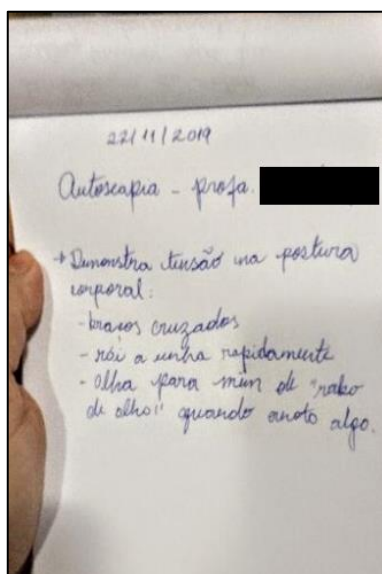 22/11/2019
Autoscopia - profa.
→ Demonstra tensão na postura
corporal:
- braços cruzados
- rói a unha rapidamente
- Olha para mim de "rabo
de olho" quando anoto algo.